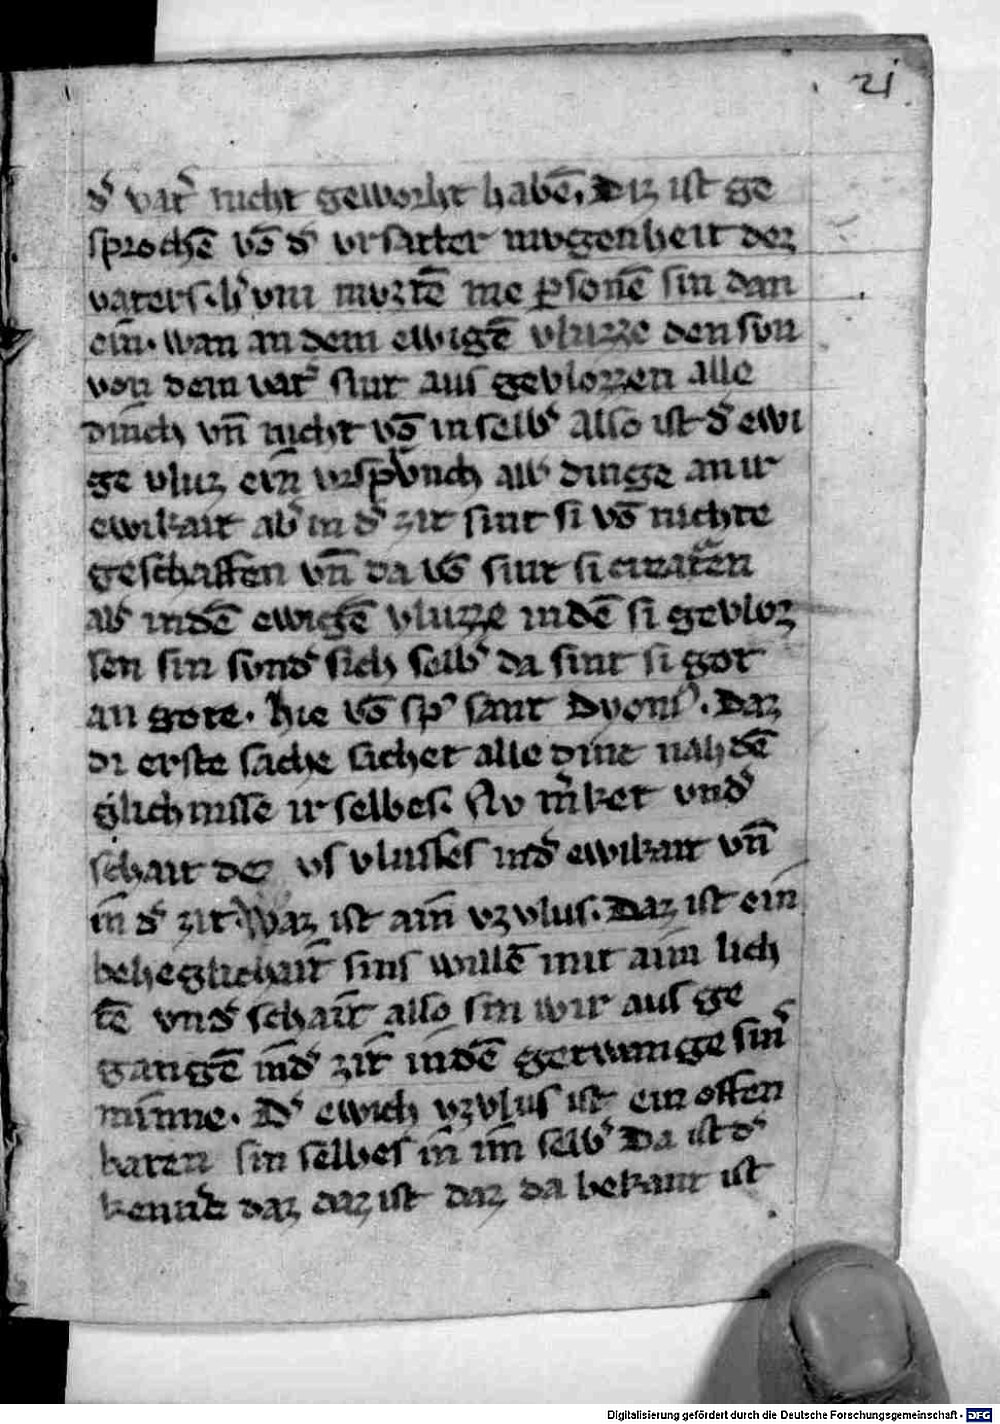 21
d᷎ vat᷎ nicht geworht habē. Diz ist ge
sprochē vō d᷎ vrsatter mvgenheit dez
vaters. vm mvztē me ꝑsonē sin dan
ein. wan an dem ewigē vluzze den svn
von dem vat᷎ sint aus gevlozzen alle
dinch vn̄ nicht vō in selb᷎ also ist d᷎ ewi
ge vluz ein vrspvnch all᷎ dinge an ir
ewikait ab᷎ in d᷎ zit sint si vō nichte
geschaffen vn̄ da vō sint si creatēn
ab᷎ in dē ewigē vluzze in dē si gevloz
sen sin svnd᷎ sich selb᷎ da sint si got
an gote. hie vō sp᷎ sant Dyonis᷎. Daz
di erste sache sichet alle dinc nah dē
glichnisse ir selbes. Nv m᷎ket vnd᷎
schait dez vs vlusses in d᷎ ewikait vn̄
in d᷎ zit. Waz ist ain vzvlus. Daz ist ein
beheglichait sins willē mit aim lich
tē vnd᷎ schait also sin wir aus ge
gangē in d᷎ zit in dē getwinge sin᷎
minne. D᷎ ewich vzvlus ist ein offen
baren sin selbes in im selb᷎ Da ist d᷎
kennd᷎ daz daz ist daz da bekant ist
Digitalisierung gefördert durch die Deutsche Forschungsgemeinschaft - DFG